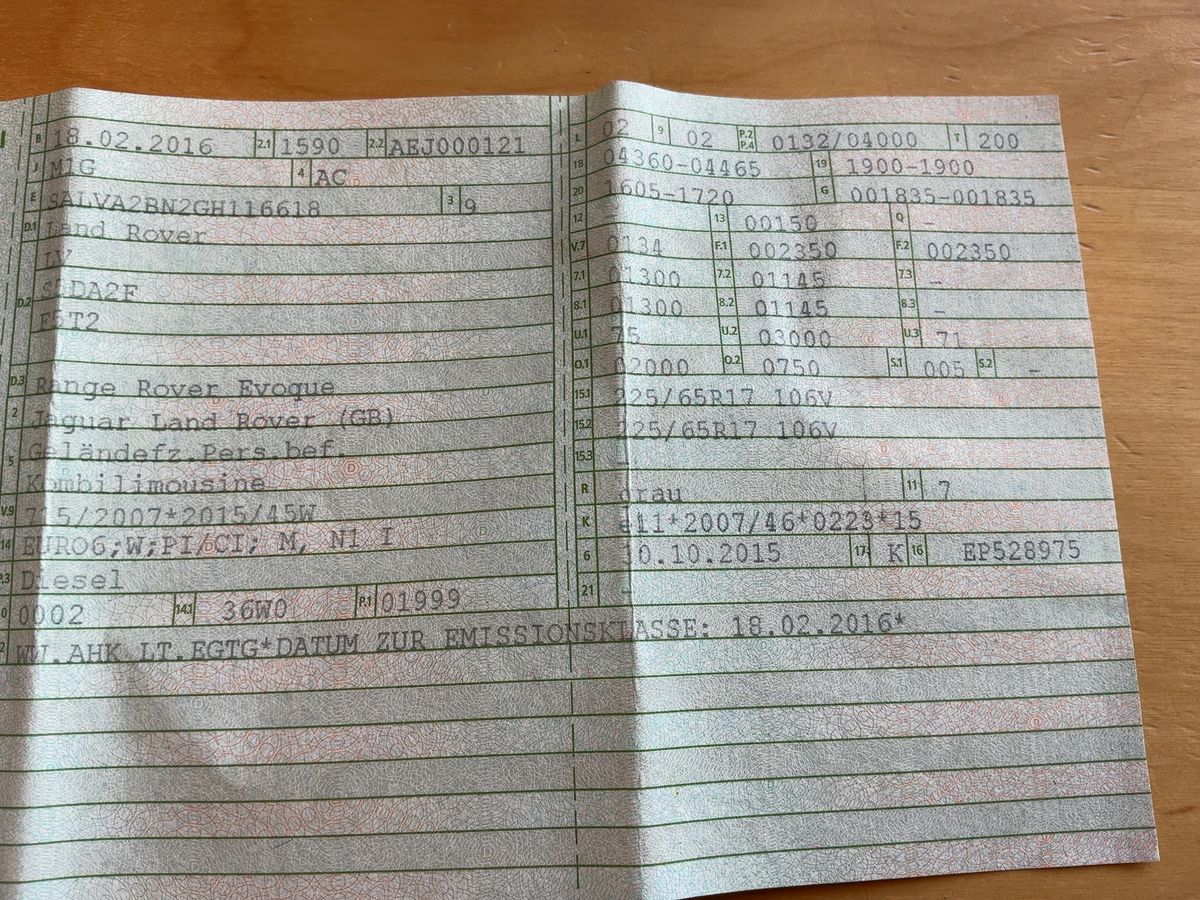 B 18.02.2016 2.1 1590 2.2 AEJ000121
J M1G 4 AC
E SALVA2BN2GH116618 3 9
D.1 Land Rover
LV
D.2 S5DA2F
F5T2
D.3 Range Rover Evoque
2 Jaguar Land Rover (GB)
5 Geländefz.Pers.bef.
Kombilimousine
V.9 715/2007*2015/45W
14 EURO6;W;PI/CI; M, N1 I
P.3 Diesel
0002 14.1 36W0 P.1 01999
L 02 9 02 P.2 P.4 0132/04000 T 200
18 04360-04465 19 1900-1900
20 1605-1720 G 001835-001835
12 - 13 00150 Q -
V.7 0134 F.1 002350 F.2 002350
7.1 01300 7.2 01145 7.3 -
8.1 01300 8.2 01145 8.3 -
U.1 75 U.2 03000 U.3 71
O.1 02000 O.2 0750 S.1 005 S.2 -
15.1 225/65R17 106V
15.2 225/65R17 106V
15.3 -
R grau 11 7
K e11*2007/46*0223*15
6 10.10.2015 17 K 16 EP528975
21 -
WW.AHK LT.EGTG*DATUM ZUR EMISSIONSKLASSE: 18.02.2016*